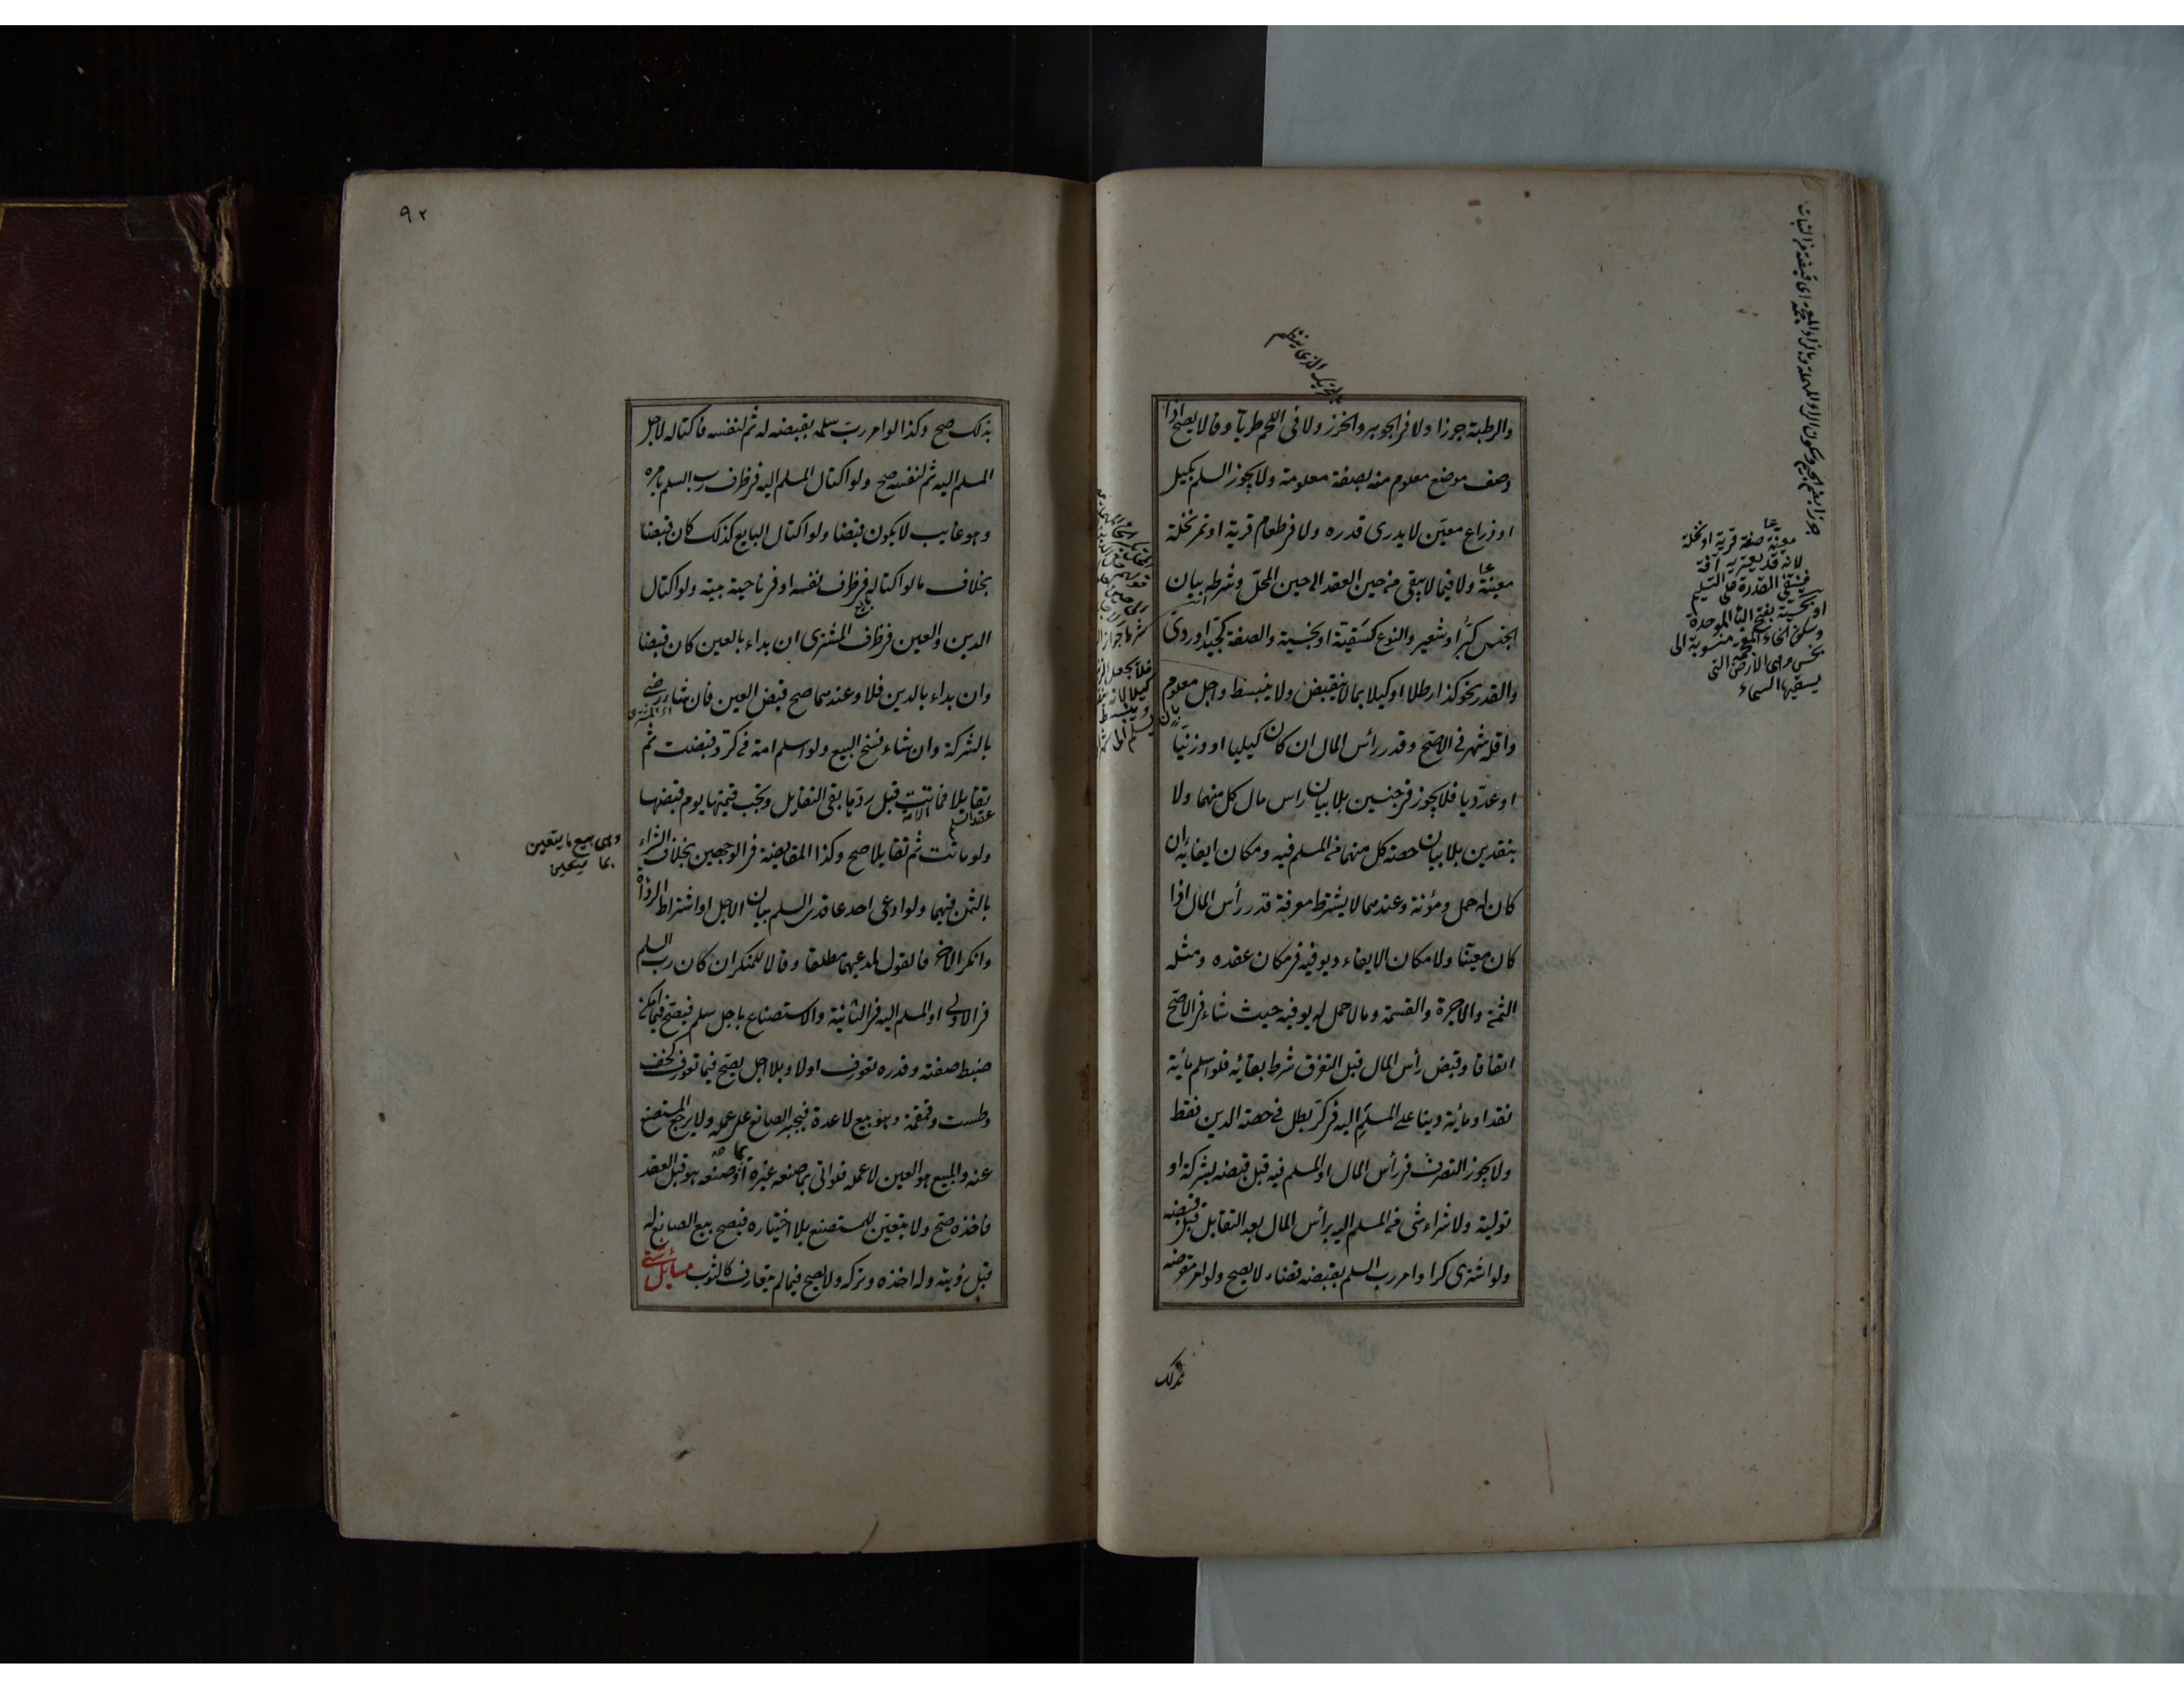 والرطبة جرزا ولا فى الجوهر والخرز ولا فى اللحم طريا وقالا يصح اذا
وصف موضع معلوم منه بصفة معلومة ولا يجوز السلم بكيل
او ذراع معين لا يدرى قدره ولا فى طعام قرية او تمر نخلة
معينة ولا فيما لا يبقى من حين العقد الى حين المحل وشرطه بيان
الجنس كبر او شعير والنوع كسقية او بخسية والصفة كجيد او ردى
والقدر نحو كذا رطلا او كيلا بما لا ينقبض ولا ينبسط واجل معلوم
واقله شهر فى الاصح وقدر رأس المال ان كان كيليا او وزنيا
او عدديا فلا يجوز فى جنسين بلا بيان راس مال كل منهما ولا
بنقدين بلا بيان حصة كل منهما من المسلم فيه ومكان ايفائه ان
كان له حمل ومؤنة وعندهما لا يشترط معرفة قدر رأس المال اذا
كان معينا ولا مكان الايفاء ويوفيه فى مكان عقده ومثله
الثمن والاجرة والقسمة وما لا حمل له يوفيه حيث شاء فى الاصح
اتفاقا وقبض رأس المال قبل التفرق شرط بقائه فلو اسلم مائة
نقدا ومائة دينا على المسلم اليه فى كر بطل فى حصة الدين فقط
ولا يجوز التصرف فى رأس المال او المسلم فيه قبل قبضه بشركة او
تولية ولا شراء شى من المسلم اليه برأس المال بعد التقايل قبل قبضه
ولو اشترى كرا وامر رب السلم بقبضه قضاء لا يصح ولو امر مقرضه
بذلك
معينة صفة قرية او نخلة
لانه قد يعتريه آفة
فينتفى القدرة على التسليم
او بخسية بفتح الباء الموحدة
وسكون الخاء المعجمة منسوبة الى
بخس وهى الارض التى
يسقيها السماء
٩٢
بذلك صح وكذا لو امر رب سلمه بقبضه له ثم لنفسه فاكتاله لاجل
المسلم اليه ثم لنفسه صح ولو اكتال المسلم اليه فى ظرف رب السلم بامره
وهو غايب لا يكون قبضا ولو اكتال البايع كذلك كان قبضا
بخلاف ما لو اكتاله فى ظرف نفسه او فى ناحية بيته ولو اكتال
الدين والعين فى ظرف المشترى ان بداء بالعين كان قبضا
وان بداء بالدين فلا وعندهما صح قبض العين فان شاء رضى
بالشركة وان شاء فسخ البيع ولو اسلم امة فى كر وقبضت ثم
تقايلا فماتت قبل ردها بقى التقايل وتجب قيمتها يوم قبضها
ولو ماتت ثم تقايلا صح وكذا المقايضة فى الوجهين بخلاف الشراء
بالثمن فيهما ولو ادعى احد عاقدى السلم بيان الاجل او اشتراط الرداءة
وانكر الاخر فالقول لمدعيهما مطلقا وقالا للمنكر ان كان رب السلم
فى الاولى او المسلم اليه فى الثانية والاستصناع باجل سلم فيصح فيما امكن
ضبط صفته وقدره تعورف اولا وبلا اجل يصح فيما تعورف كخف
وطست وقمقمة وهو بيع لا عدة فيجبر الصانع على عمله ولا يرجع المستصنع
عنه والمبيع هو العين لا عمله فلو اتى بما صنعه غيره او بما صنعه هو قبل العقد
فاخذه صح ولا يتعين للمستصنع بلا اختياره فيصح بيع الصانع له
قبل رؤيته وله اخذه وتركه ولا يصح فيما لم يتعارف كالثوب مسائل شتى
وهى بيع ما يتعين
بما يتعين